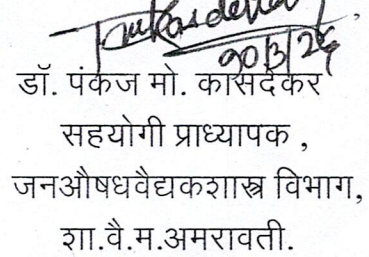 डॉ. पंकज मो. कासदेकर
सहयोगी प्राध्यापक ,
जनऔषधवैद्यकशास्त्र विभाग,
शा.वै.म.अमरावती.